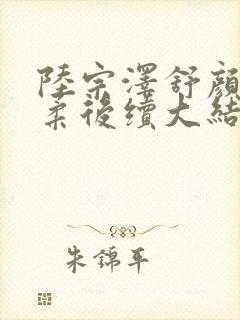 陸宗澤舒顏
柔後續大結
朱錦平